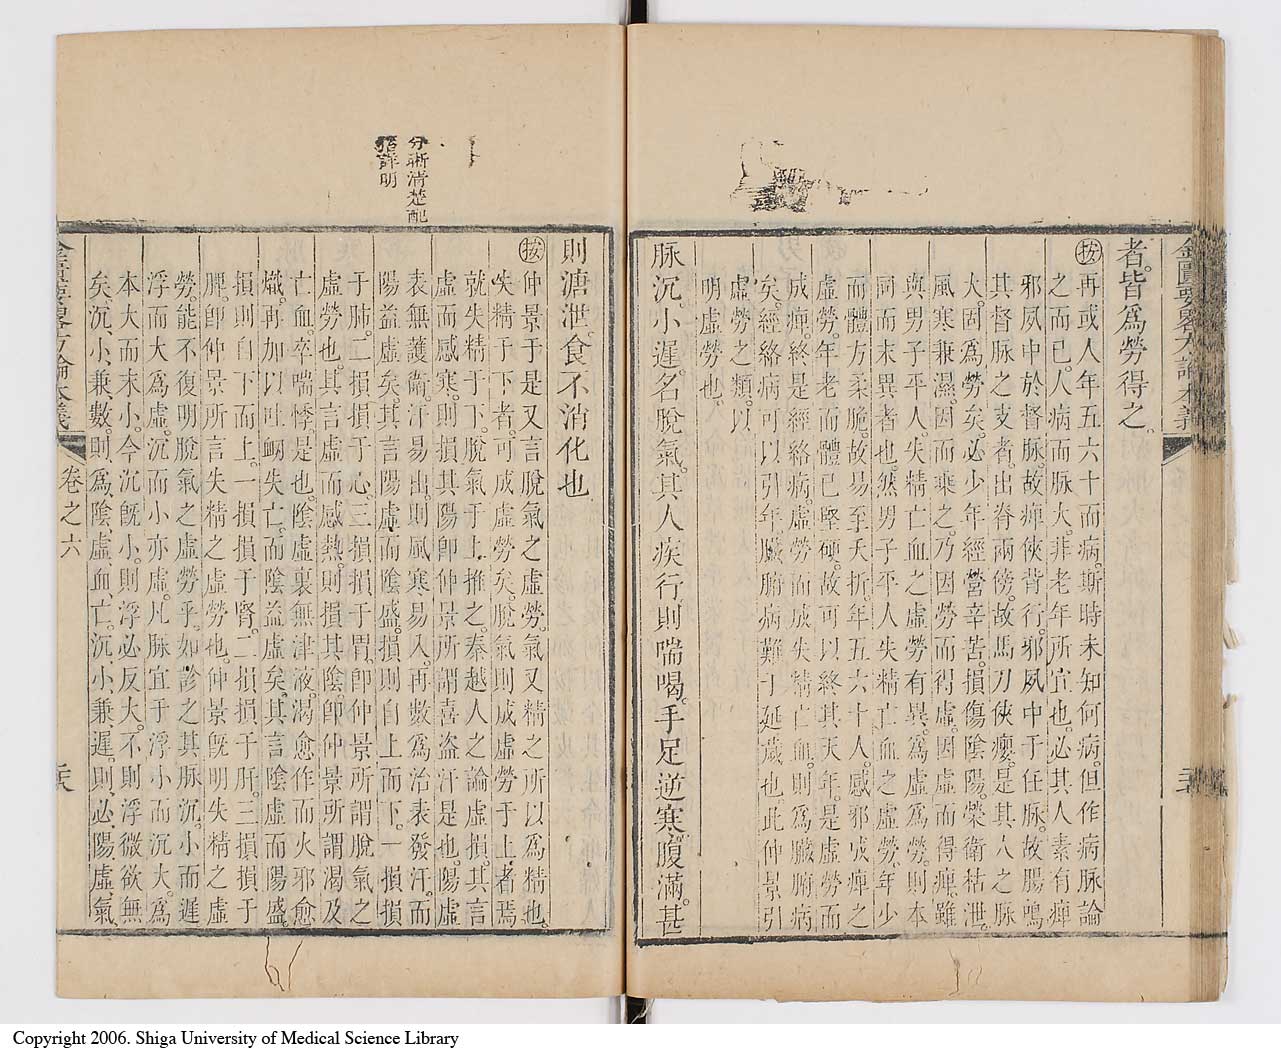 金匱要畧方論本義
者。皆爲勞得之。
按再或人年五六十而病。斯時未知何病。但作病脉論
之而已。人病而脉大。非老年所宜也。必其人素有痺
邪夙中於督脉。故痺俠背行。邪夙中于任脉。故腸鳴
其督脉之支者。出脊兩傍。故馬刀俠癭。是其人之脉
大。固爲勞矣。必少年經營辛苦。損傷陰陽。榮衛枯泄。
風寒兼濕。因而乘之。乃因勞而得虛。因虛而得痺。雖
與男子平人。失精亡血之虛勞有異。爲虛爲勞。則本
同而末異者也。然男子平人失精亡血之虛勞。年少
而體方柔脆。故易至夭折。年五六十人。感邪成痺之
虛勞。年老而體已堅硬。故可以終其天年。是虛勞而
成痺。終是經絡病。虛勞而成失精亡血。則爲臟腑病
矣。經絡病可以引年。臟腑病難于延歲也。此仲景引
虛勞之類。以
明虛勞也。
脉沉。小遲。名脫氣。其人疾行則喘喝。手足逆寒。腹滿。甚
則溏泄。食不消化也。
分晰清楚配
詳明
按仲景于是又言脫氣之虛勞。氣又精之所以爲精也。
失精于下者。可成虛勞矣。脫氣則成虛勞于上者焉
就失精于下。脫氣于上推之。秦越人之論虛損。其言
虛而感寒。則損其陽。卽仲景所謂喜盗汗是也。陽虛
表無護衛。汗易出。則風寒易入。再數爲治表發汗。而
陽益虛矣。其言陽虛而陰盛。損則自上而下。一損損
于肺。二損損于心。三損損于胃。卽仲景所謂脫氣之
虛勞也。其言虛而感熱。則損其陰。卽仲景所謂渴及
亡血。卒喘悸是也。陰虛裏無津液。渴愈作而火邪愈
熾。再加以吐衂失亡。而陰益虛矣。其言陰虛而陽盛。
損則自下而上。一損損于腎。二損損于肝。三損損于
脾。卽仲景所言失精之虛勞也。仲景旣明失精之虛
勞。能不復明脫氣之虛勞乎。如診之其脉沉。小而遲
浮而大爲虛。沉而小亦虛。凡脉宜于浮小而沉大。爲
本大而末小。今沉旣小。則浮必反大。不則浮微欲無
矣。沉小兼數。則爲陰虛血亡。沉小兼遲。則必陽虛氣
金匱要畧方論本義
卷之六